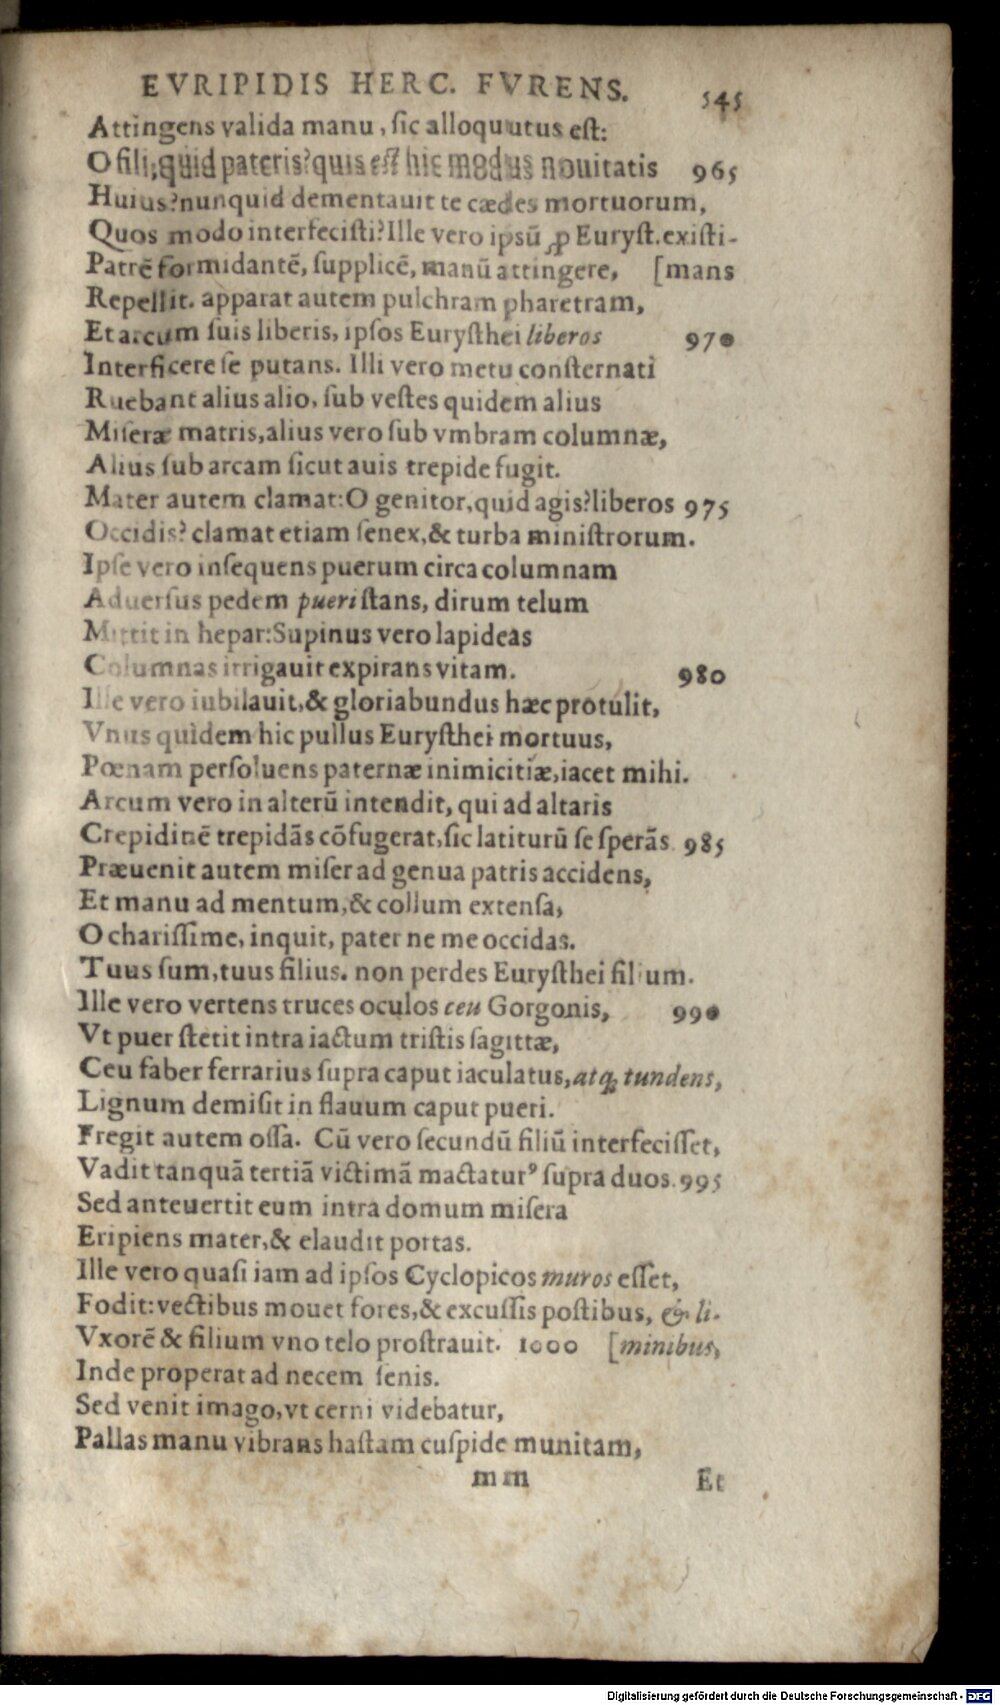 EVRIPIDIS HERC. FVRENS. 545
Attingens valida manu, sic alloquutus est:
O fili, quid pateris? quis est hic modus nouitatis 965
Huius? nunquid dementauit te cædes mortuorum,
Quos modo interfecisti? Ille vero ipsū ꝓ Euryst. existi-
Patrē formidantē, supplicē, manū attingere, [mans
Repellit. apparat autem pulchram pharetram,
Et arcum suis liberis, ipsos Eurysthei liberos 970
Interficere se putans. Illi vero metu consternati
Ruebant alius alio, sub vestes quidem alius
Miseræ matris, alius vero sub vmbram columnæ,
Alius sub arcam sicut auis trepide fugit.
Mater autem clamat: O genitor, quid agis? liberos 975
Occidis? clamat etiam senex, & turba ministrorum.
Ipse vero insequens puerum circa columnam
Aduersus pedem pueri stans, dirum telum
Mittit in hepar: Supinus vero lapideas
Columnas irrigauit expirans vitam. 980
Ille vero iubilauit, & gloriabundus hæc protulit,
Vnus quidem hic pullus Eurysthei mortuus,
Pœnam persoluens paternæ inimicitiæ, iacet mihi.
Arcum vero in alterū intendit, qui ad altaris
Crepidinē trepidās cōfugerat, sic latiturū se sperās. 985
Præuenit autem miser ad genua patris accidens,
Et manu ad mentum, & collum extensa,
O charissime, inquit, pater ne me occidas.
Tuus sum, tuus filius. non perdes Eurysthei filium.
Ille vero vertens truces oculos ceu Gorgonis, 990
Vt puer stetit intra iactum tristis sagittæ,
Ceu faber ferrarius supra caput iaculatus, atq; tundens,
Lignum demisit in flauum caput pueri.
Fregit autem ossa. Cū vero secundū filiū interfecisset,
Vadit tanquā tertiā victimā mactaturꝰ supra duos. 995
Sed anteuertit eum intra domum misera
Eripiens mater, & elaudit portas.
Ille vero quasi iam ad ipsos Cyclopicos muros esset,
Fodit: vectibus mouet fores, & excussis postibus, & li-
Vxorē & filium vno telo prostrauit. 1000 [minibus,
Inde properat ad necem senis.
Sed venit imago, vt cerni videbatur,
Pallas manu vibrans hastam cuspide munitam,
mm Et
Digitalisierung gefördert durch die Deutsche Forschungsgemeinschaft - DFG